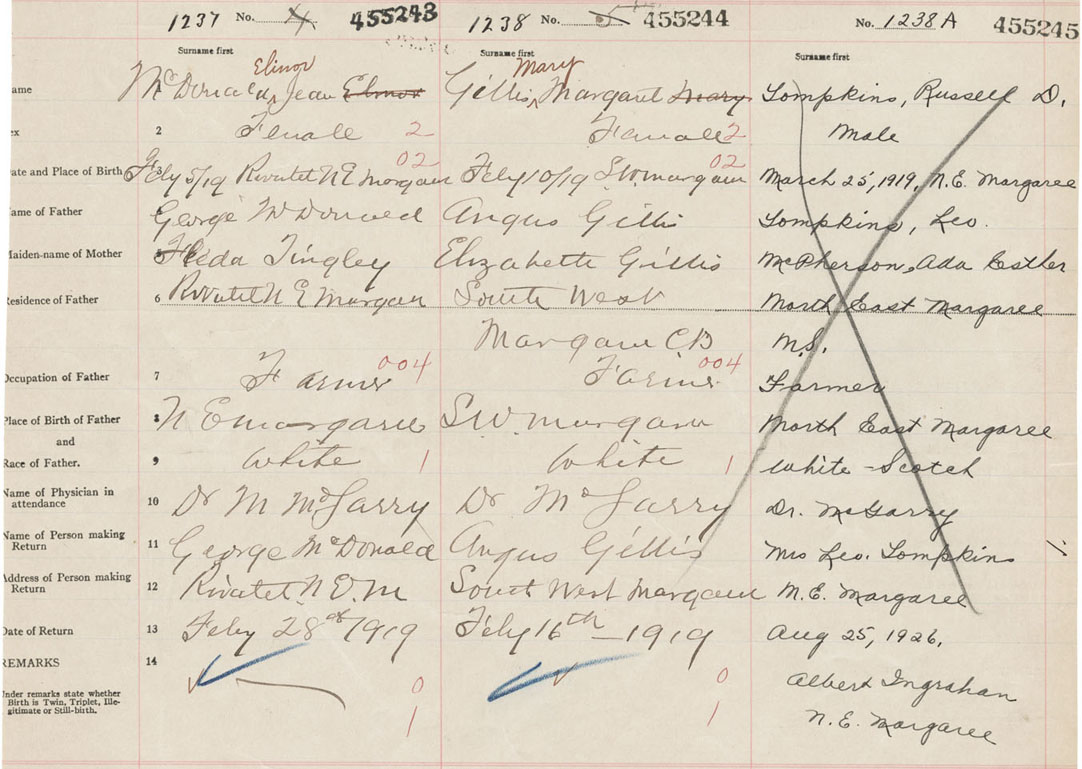 1237 No. 4 455243 1238 No. 5 455244 No. 1238A 455245
Surname first Surname first Surname first
Elinor Mary
ame McDonald, Jean Elinor Gillis, Margaret Mary Tompkins, Russell D.
ex 2 Female 2 Female 2 Male
02 02
ate and Place of Birth Feby 5/19 N E Margaree Feby 10/19 S W Margaree March 25, 1919, N.E. Margaree
ame of Father George McDonald Angus Gillis Tompkins, Leo.
Maiden-name of Mother Tingley Elizabeth Gillis McPherson, Ada Esther
Residence of Father 6 N E Margaree South West North East Margaree
Margaree C.B N.S.
004 004
Occupation of Father 7 Farmer Farmer Farmer
Place of Birth of Father 8 N E Margaree S.W. Margaree North East Margaree
and
Race of Father. 9 White 1 White 1 White - Scotch
Name of Physician in
attendance 10 Dr M McGarry Dr McGarry Dr. McGarry
Name of Person making
Return 11 George McDonald Angus Gillis Mrs Leo. Tompkins
Address of Person making
Return 12 N.E.M South West Margaree N.E. Margaree
Date of Return 13 Feby 28th 1919 Feby 16th - 1919 Aug 25, 1926.
REMARKS 14
Under remarks state whether
Birth is Twin, Triplet, Ille-
gitimate or Still-birth.
0 0 Albert Ingraham
1 1 N.E. Margaree